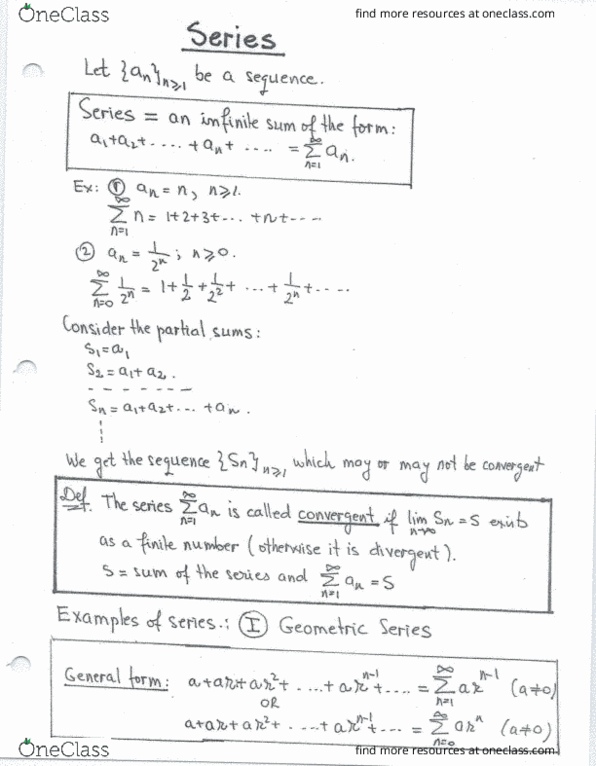 OneClass
find more resources at oneclass.com
Series
Let {aₙ}ₙ≥₁ be a sequence.
Series = an infinite sum of the form:
a₁+a₂+.....+aₙ+.... = ∑_{n=1}^{∞} aₙ.
Ex: ① aₙ = n, n≥1.
∑_{n=1}^{∞} n = 1+2+3+...+n+....
② aₙ = 1/2ⁿ ; n≥0.
∑_{n=0}^{∞} 1/2ⁿ = 1+1/2+1/2²+...+1/2ⁿ+....
Consider the partial sums:
S₁=a₁
S₂=a₁+a₂.
- - - - - - -
Sₙ=a₁+a₂+...+aₙ.
We get the sequence {Sₙ}ₙ≥₁ which may or may not be convergent
Def. The series ∑_{n=1}^{∞} aₙ is called convergent if lim_{n→∞} Sₙ = S exists
as a finite number (otherwise it is divergent).
S = sum of the series and ∑_{n=1}^{∞} aₙ = S
Examples of series.: Ⓘ Geometric Series
General form: a+ar+ar²+...+arⁿ⁻¹+.... = ∑_{n=1}^{∞} arⁿ⁻¹ (a≠0)
OR
a+ar+ar²+...+arⁿ⁻¹+... = ∑_{n=0}^{∞} arⁿ (a≠0)
OneClass
find more resources at oneclass.com